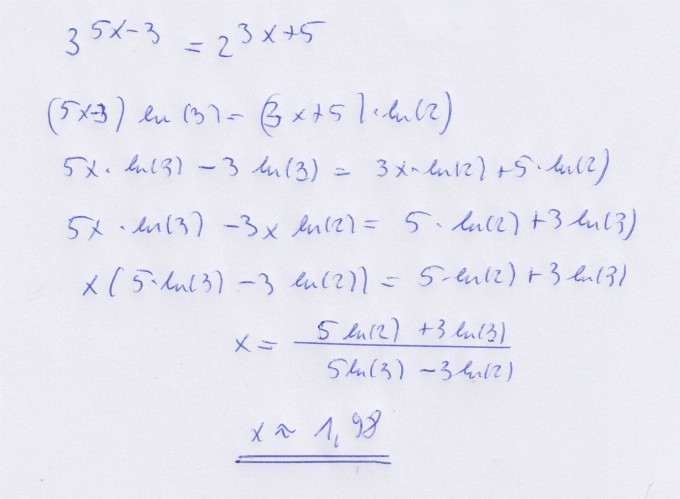 3^{5x-3} = 2^{3x+5}
(5x-3) ln(3) = (3x+5)·ln(2)
5x·ln(3) - 3 ln(3) = 3x·ln(2) + 5·ln(2)
5x·ln(3) - 3x ln(2) = 5·ln(2) + 3 ln(3)
x(5·ln(3) - 3 ln(2)) = 5·ln(2) + 3 ln(3)
x = \frac{5 ln(2) + 3 ln(3)}{5 ln(3) - 3 ln(2)}
x ≈ 1,98